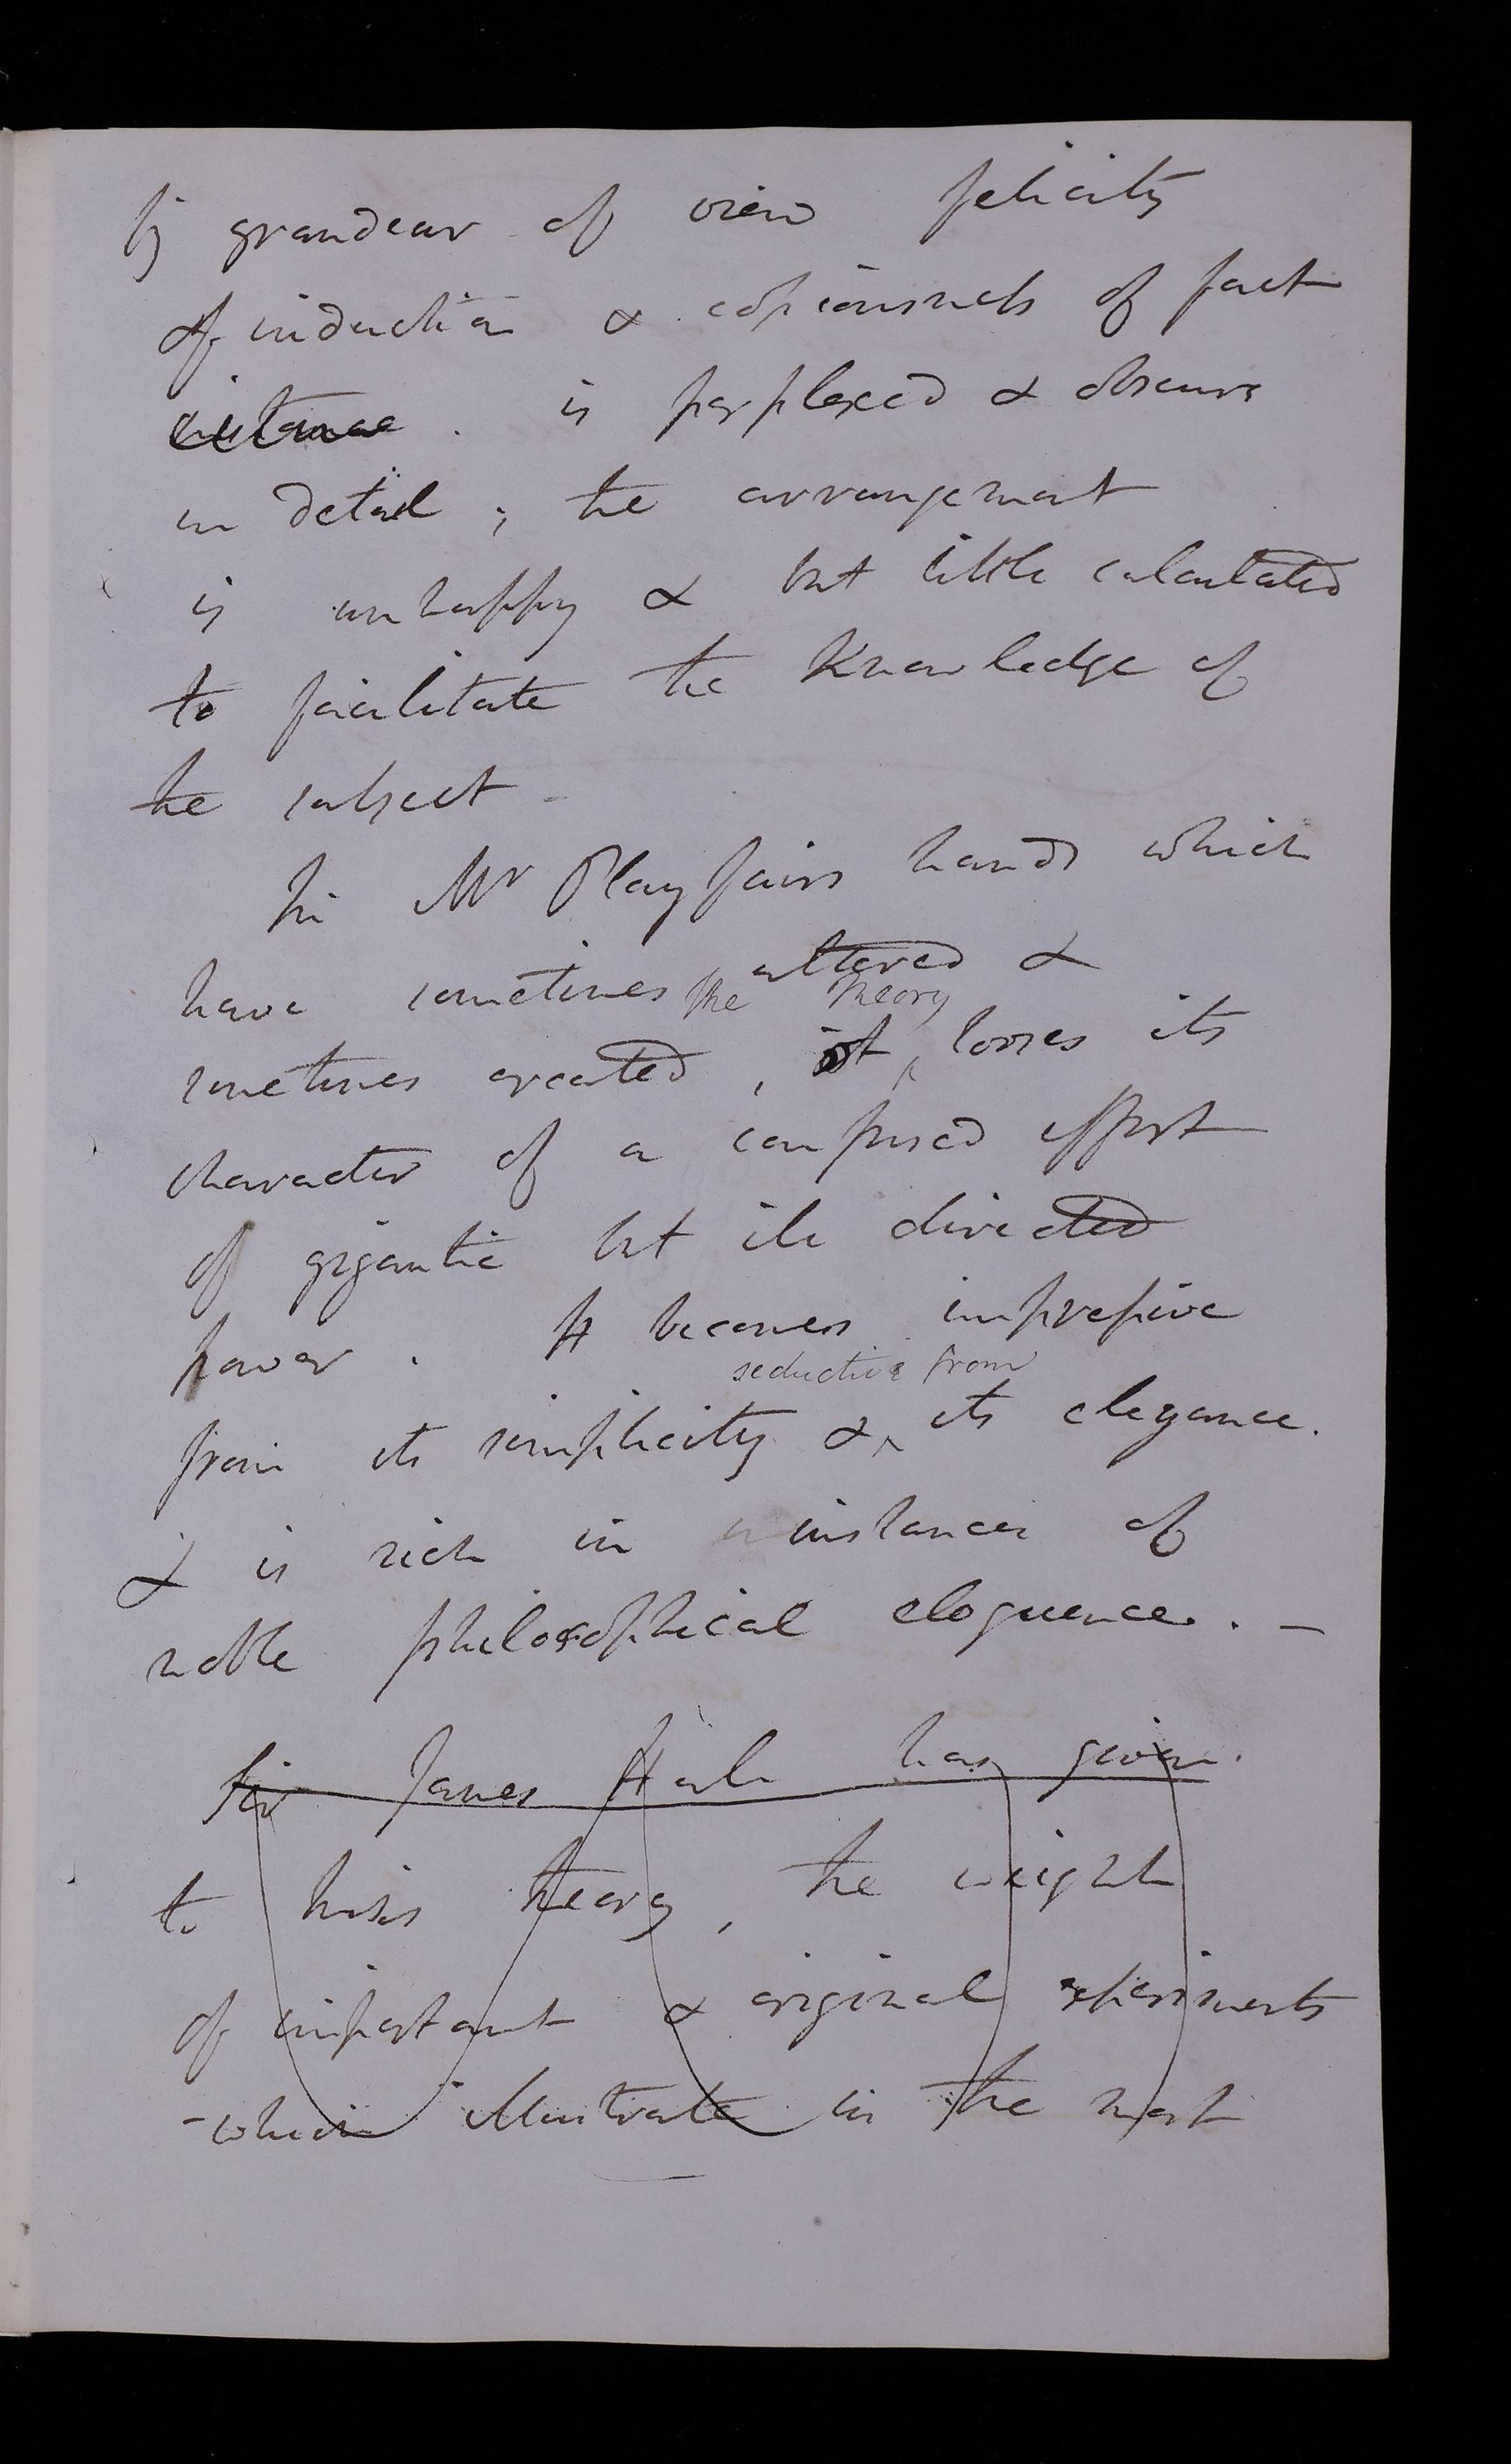 by grandeur of view felicity
of induction & copiousness of fact
is perplexed & obscure
in detail; the arrangement
is unhappy & but little calculated
to facilitate the Knowledge of
the subject -
In Mr Playfairs hands which
have sometimes altered &
the theory
sometimes created, it looses its
character of a confused effort
of gigantic but ill directed
power. It becomes impressive
seductive from
from its simplicity & its elegance.
& is rich in instances of
noble philosophical eloquence. -
Sir James Hall has given
to this theory, the weight
of important & original experiments
- which illustrate in the most